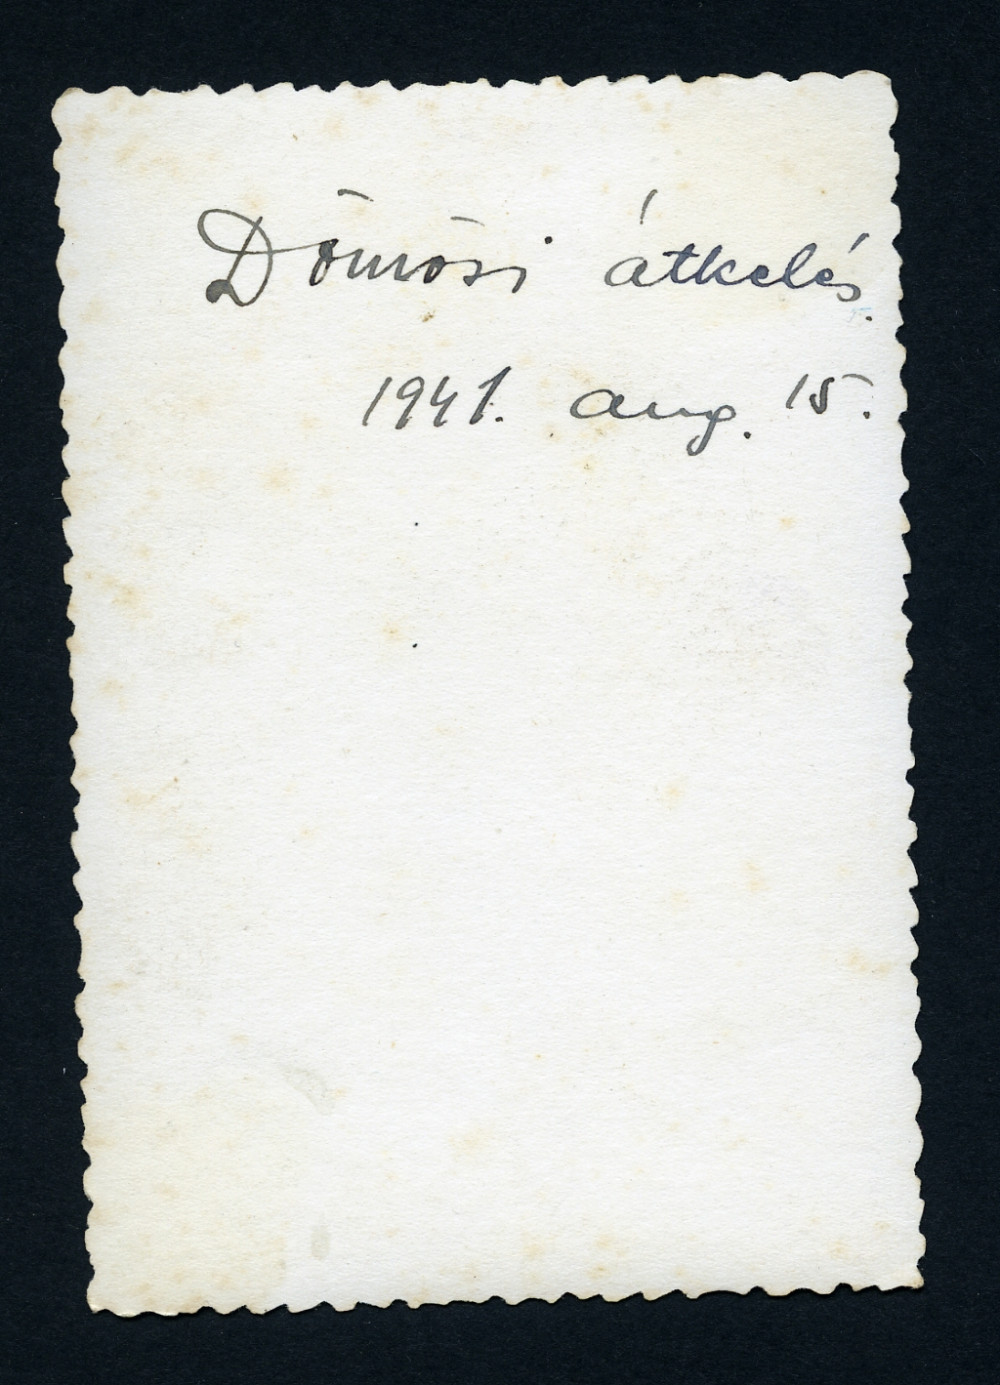 Dömösi átkelés.
1941. aug. 15.